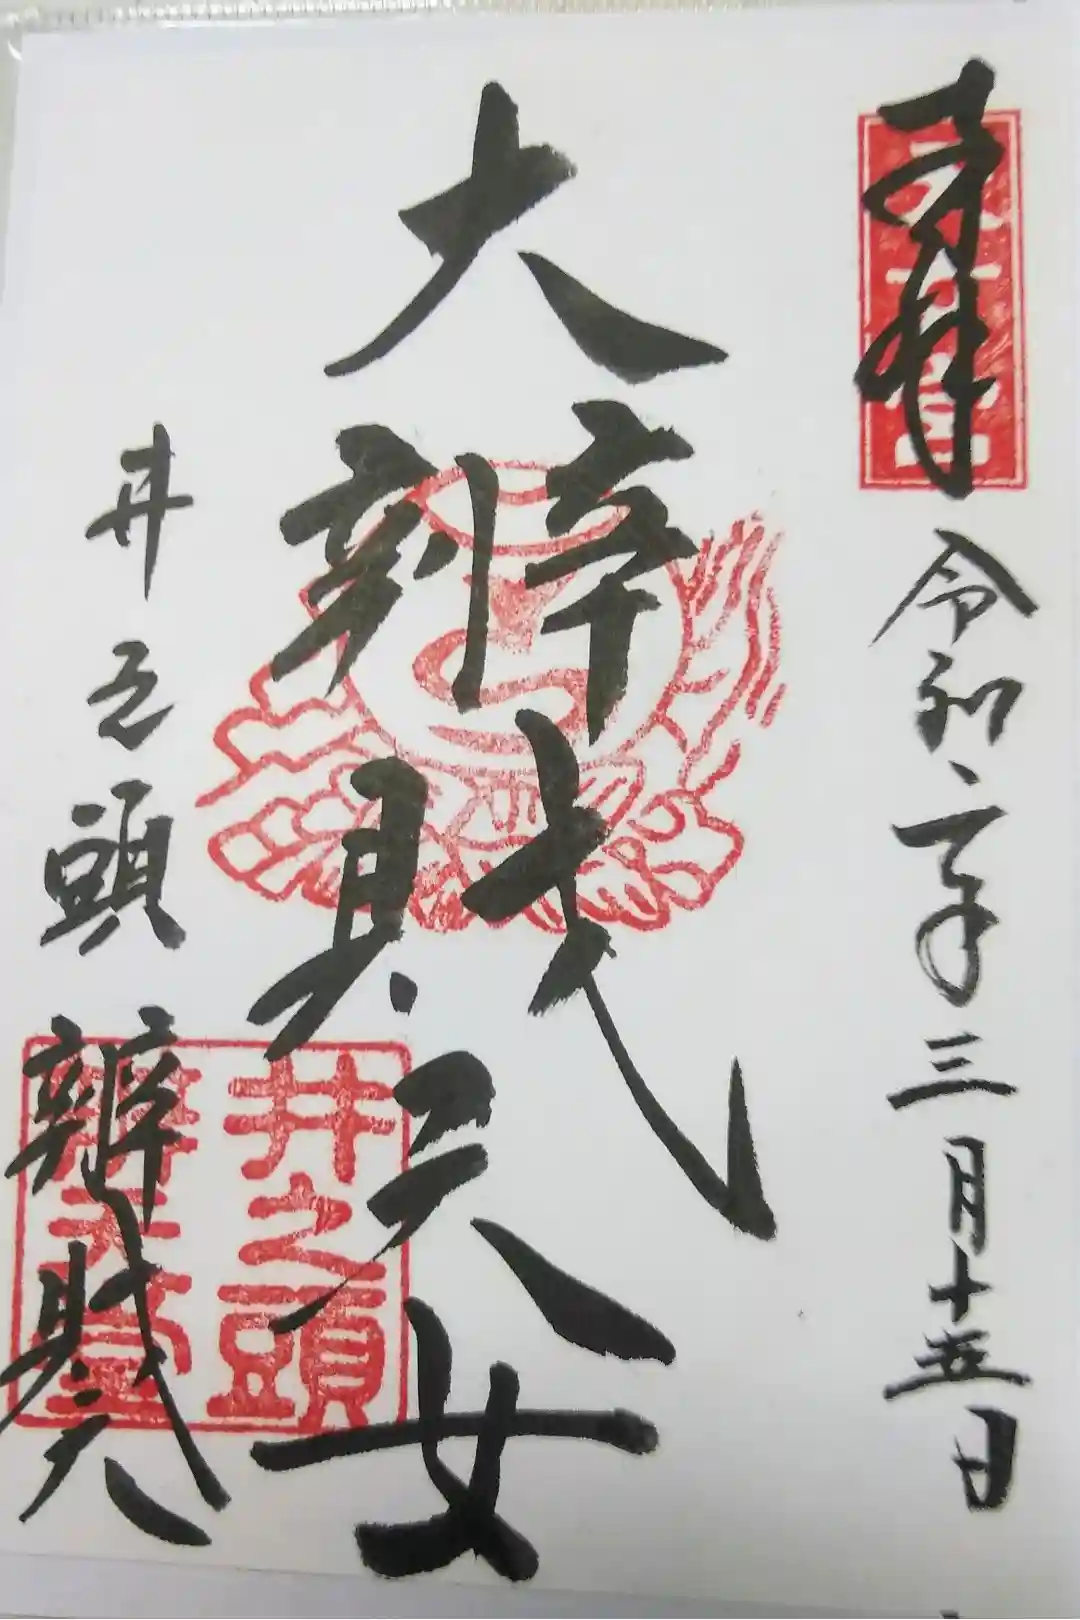 奉拝
令和二年三月十五日
大辨財天女
井之頭辨財天
井之頭
辨天堂